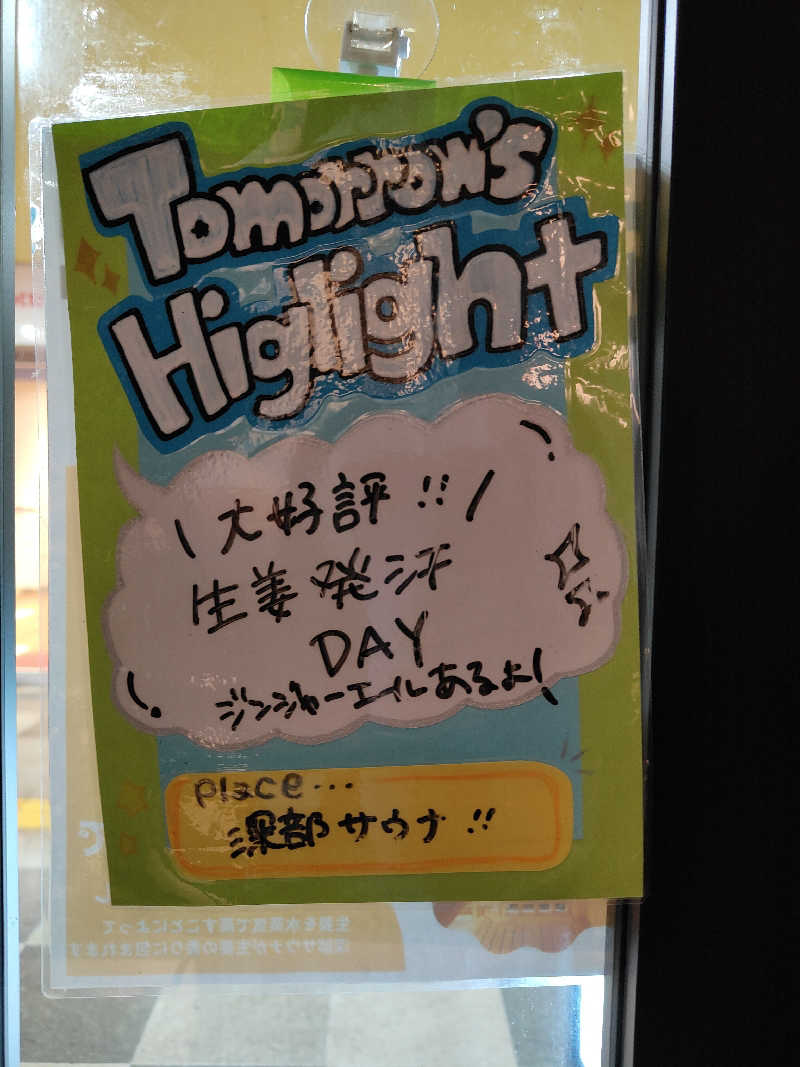 Tomorrow's
Higlight
大好評!!
生姜発汗
DAY
ジンジャーエールあるよ!
place...
深部サウナ!!